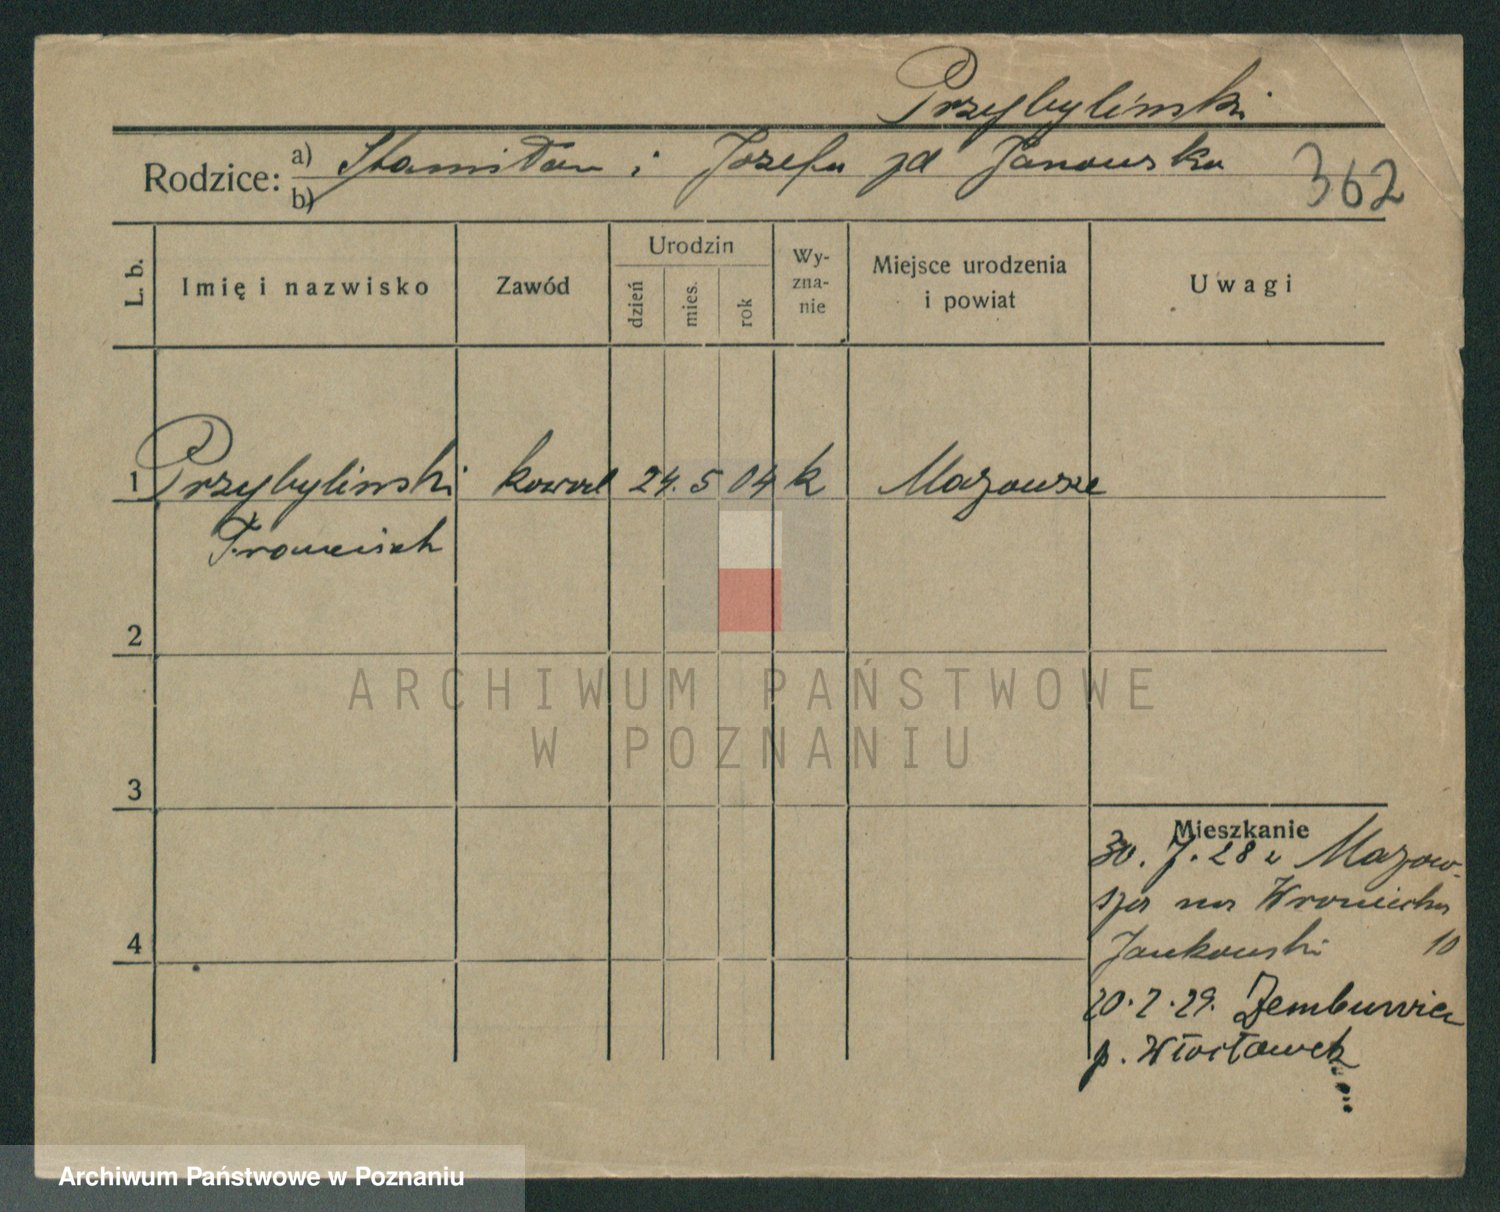 Przybyliński
Rodzice: a) Stanisław i Józefa zd Janowska
b)
362
L. b.
Imię i nazwisko
Zawód
Urodzin
dzień
mies.
rok
Wy-
zna-
nie
Miejsce urodzenia
i powiat
Uwagi
1 Przybyliński kowal 24. 5 04 k Mazowsze
Franciszek
2
ARCHIWUM PAŃSTWOWE
W POZNANIU
3
Mieszkanie
30. 7. 28 z Mazow-
sza na Wroniecka
Jankowski 10
20. 2. 29.
p. Włocławek
4
Archiwum Państwowe w Poznaniu